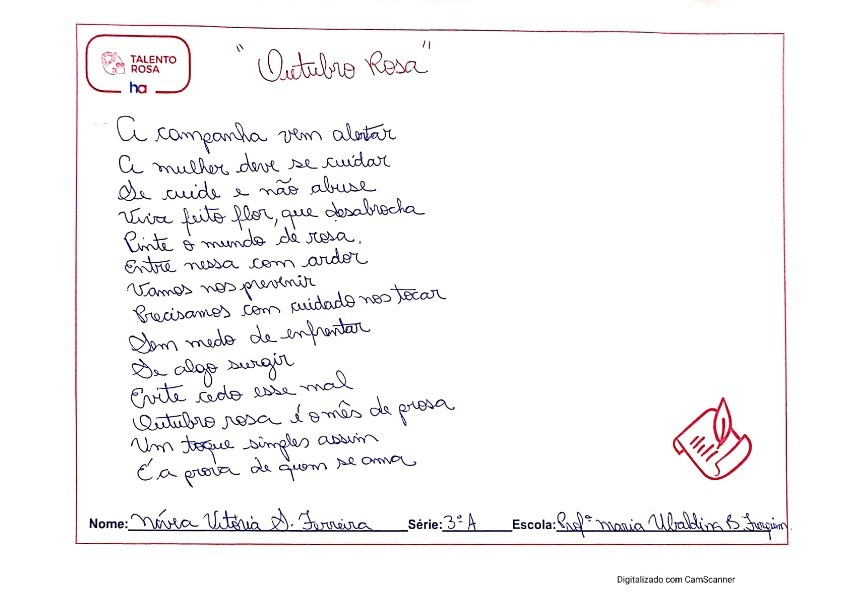 TALENTO
ROSA
ha
"Outubro Rosa"
A campanha vem alertar
A mulher deve se cuidar
Se cuide e não abuse
Viva feito flor, que desabrocha
Pinte o mundo de rosa.
Entre nessa com ardor
Vamos nos prevenir
Precisamos com cuidado nos tocar
Sem medo de enfrentar
Se algo surgir
Evite cedo esse mal
Outubro rosa é o mês de prosa
Um toque simples assim
É a prova de quem se ama
Nome: Nívea Vitória S. Ferreira Série: 3º A Escola: Profª Maria Ubaldina B. Furquim
Digitalizado com CamScanner